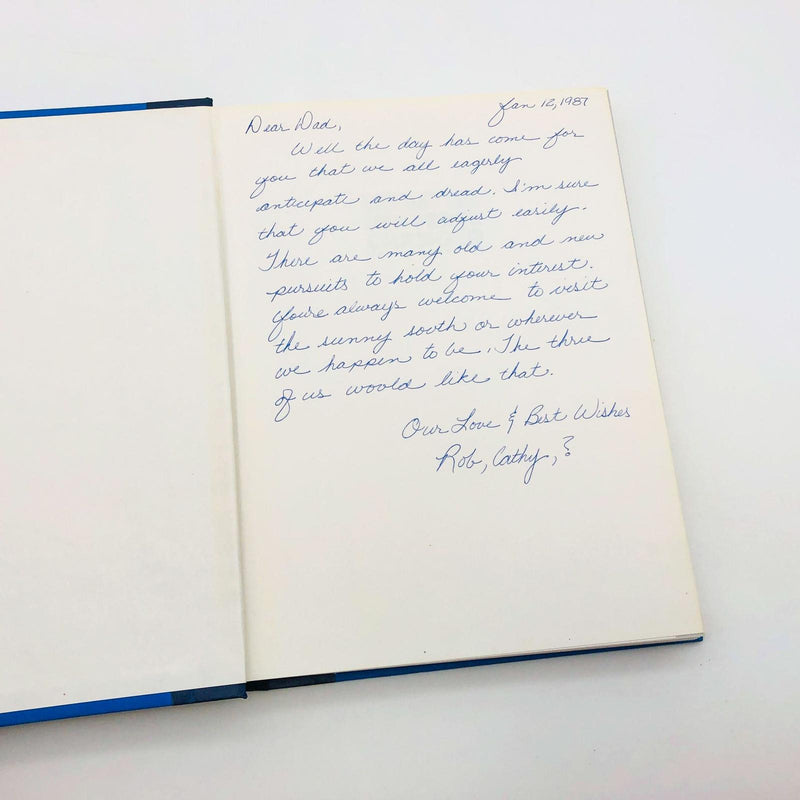 Jan 12, 1987
Dear Dad,
Well the day has come for
you that we all eagerly
anticipate and dread. I'm sure
that you will adjust easily.
There are many old and new
pursuits to hold your interest.
You're always welcome to visit
the sunny south or wherever
we happen to be. The three
of us would like that.
Our Love & Best Wishes
Rob, Cathy, ?